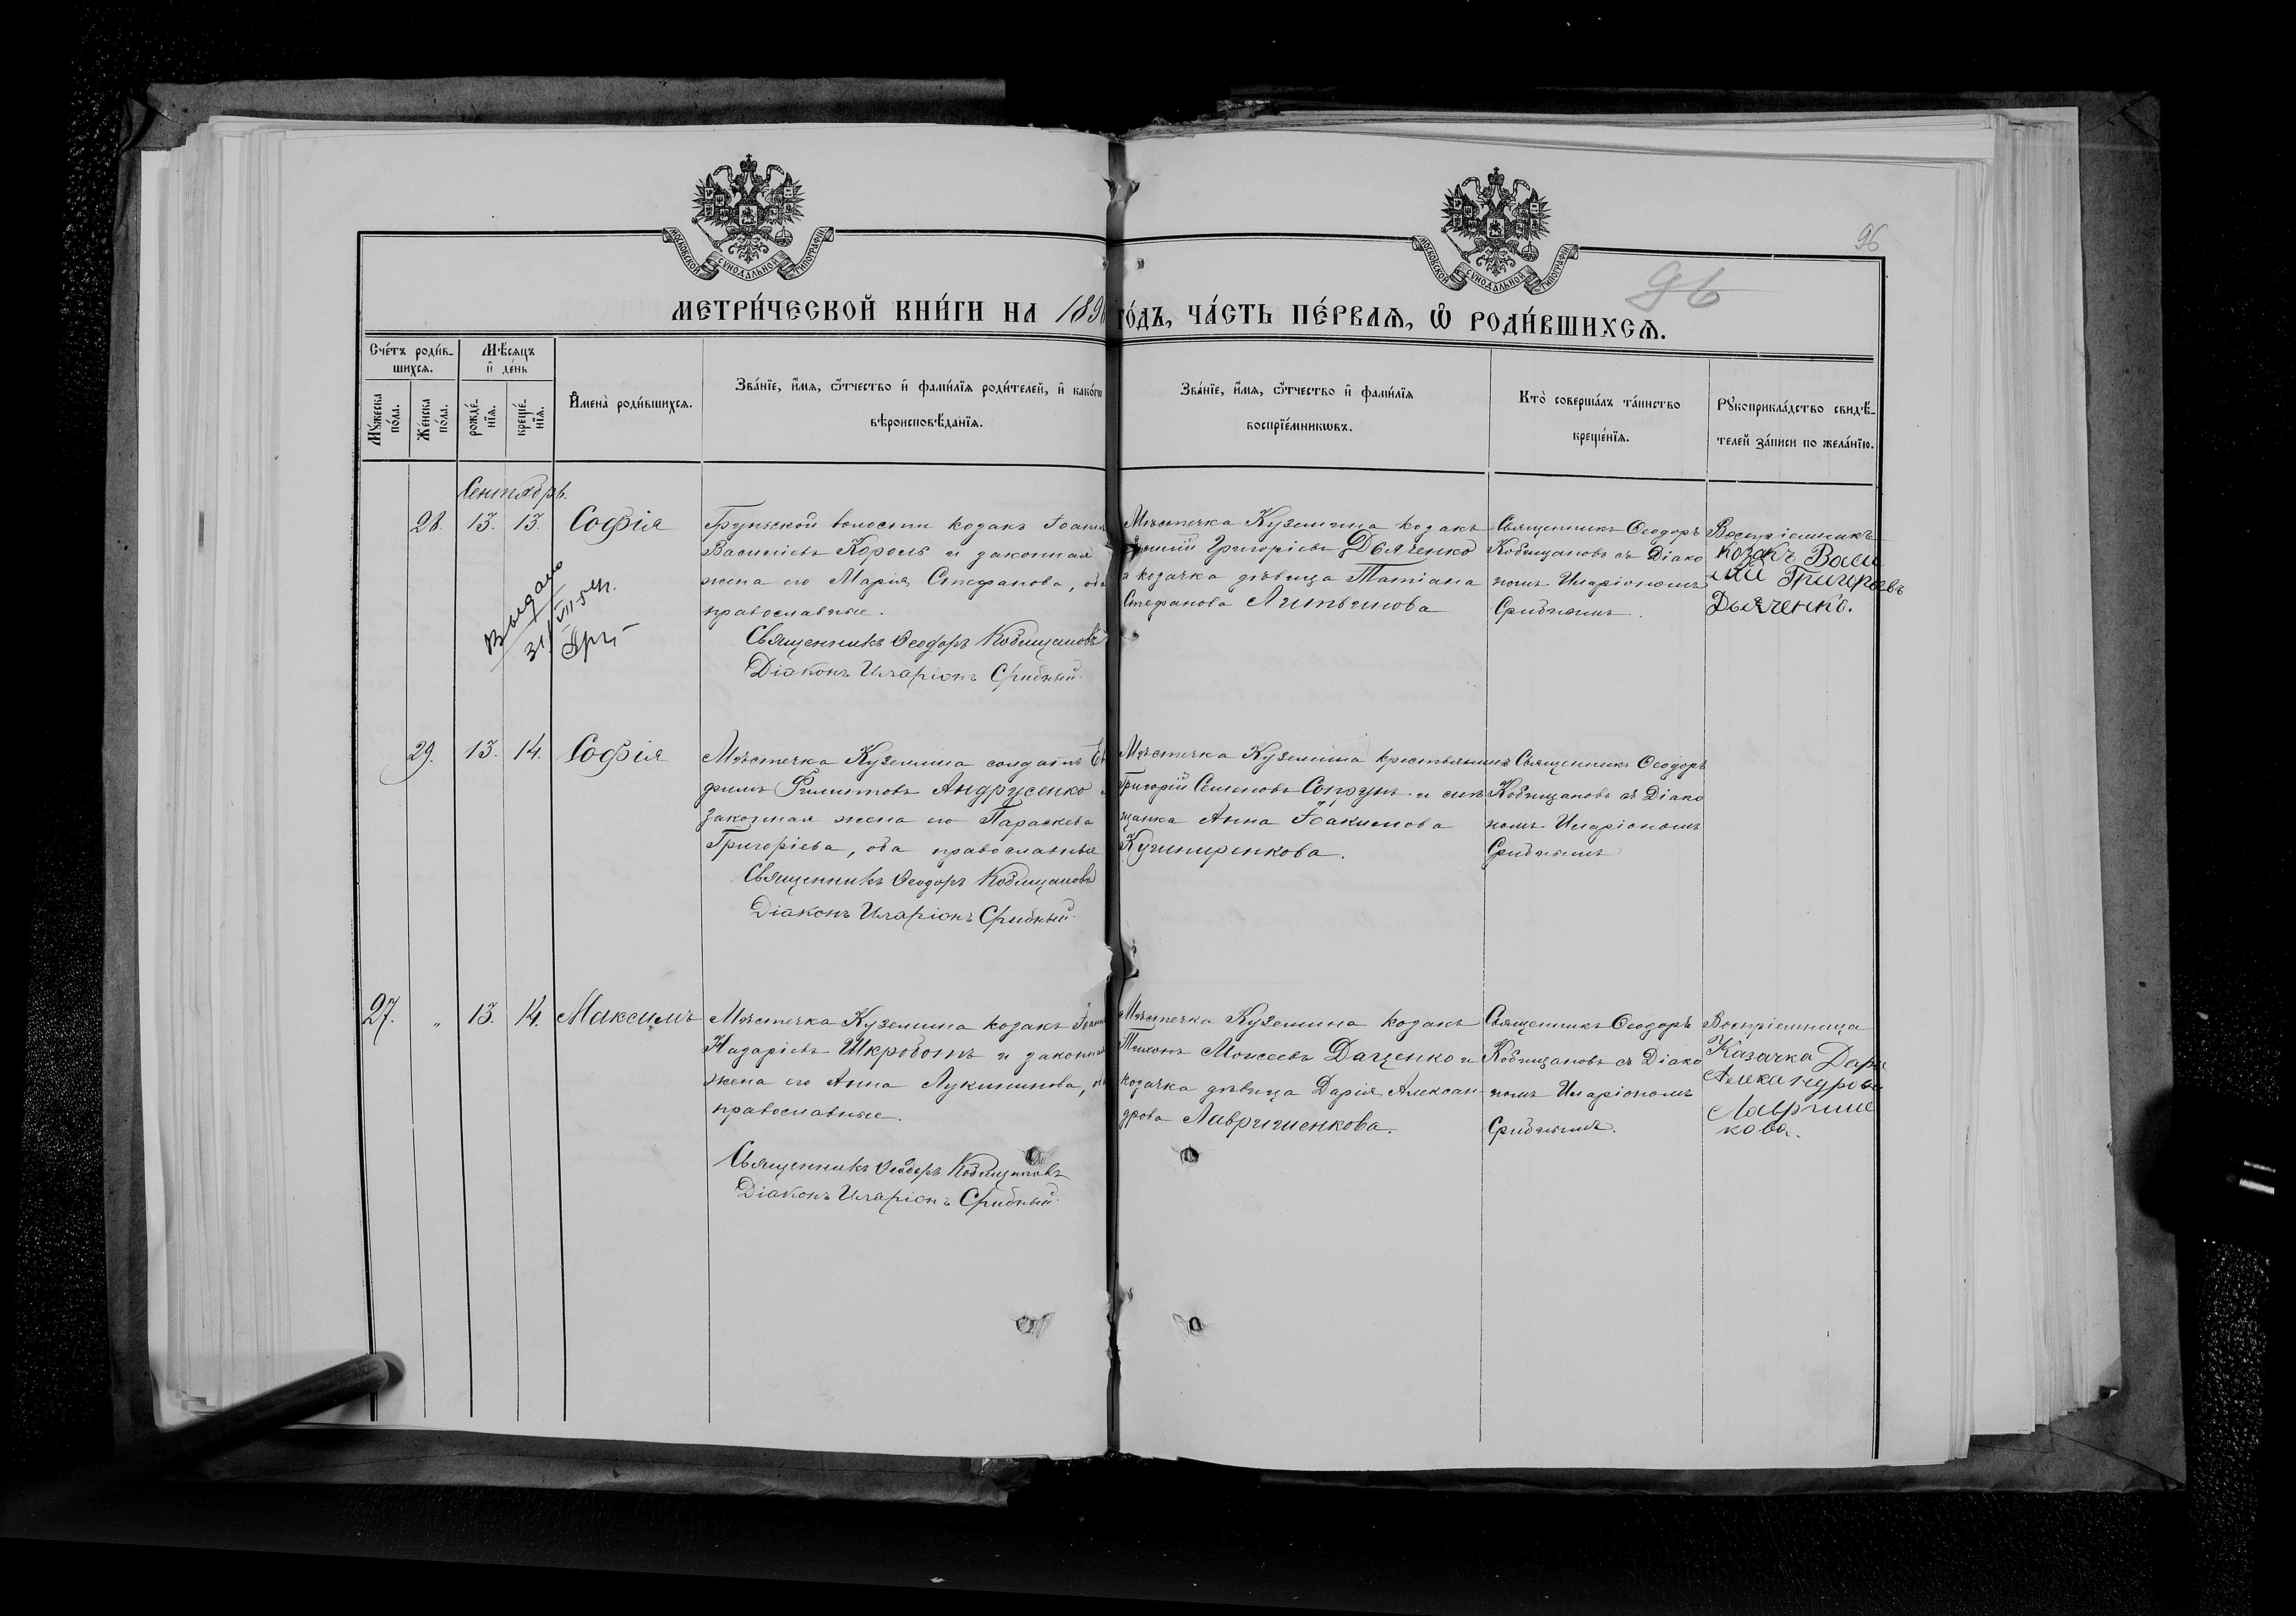 96
96
МОСКОВСКОЙ СѴНОДАЛЬНОЙ ТИПОГРАФІИ
МОСКОВСКОЙ СѴНОДАЛЬНОЙ ТИПОГРАФІИ
МЕТРИ́ЧЕСКОЙ КНИ́ГИ НА 189 го́дъ, ЧА́СТЬ ПЕ́РВАѦ, Ѽ РОДИ́ВШИХСѦ.
Сче́тъ роди́в-
шихсѧ.
Мѣ́сѧцъ
и҆ де́нь
Мꙋ́жеска
по́ла.
Же́нска
по́ла.
рожде́-
нїѧ.
креще́-
нїѧ.
И҆мена̀ роди́вшихсѧ.
Зва́нїе, и҆́мѧ, ѻ҆́тчество и҆ фамі́лїѧ роди́телей, и҆ како́гѡ
вѣроисповѣ́данїѧ.
Зва́нїе, и҆́мѧ, ѻ҆́тчество и҆ фамі́лїѧ
воспрїе́мникѡвъ.
Кто̀ соверша́лъ та́инство
креще́нїѧ.
Рꙋкоприкла́дство свидѣ́-
телей за́писи по жела́нїю.
Сентябрь.
28. 13. 13. Софія
Грунской волости козакъ Іоаннъ
Василіевъ Король и законная
жена его Марія Стефанова, оба
православные.
Священникъ Ѳеодоръ Кобищановъ
Діаконъ Иларіонъ Срибный.
Мѣстечка Куземина козакъ
Григоріевъ Дьяченко
и козачка дѣвица Татіана
Стефанова Литвинова
Священникъ Ѳеодоръ
Кобищановъ съ Діако
номъ Иларіономъ
Срибнымъ.
Воспріемникъ
козакъ Васи
лій Григорьевъ
Дьяченко.
Выдано
29. 13. 14. Софія
Мѣстечка Куземина солдатъ Ев
фимъ Филиповъ Андрусенко
законная жена его Параскева
Григоріева, оба православные
Священникъ Ѳеодоръ Кобищановъ
Діаконъ Иларіонъ Срибный.
Мѣстечка Куземина крестьянинъ
Григорій Семеновъ Сопрунъ и
щанка Анна Іоакимова
Кушниренкова.
Священникъ Ѳеодоръ
Кобищановъ съ Діако
номъ Иларіономъ
Срибнымъ
27. „ 13. 14. Максимъ
Мѣстечка Куземина козакъ Іоаннъ
Назаріевъ Шкроботъ и законная
жена его Анна Лукиминова,
православные.
Священникъ Ѳеодоръ Кобищановъ
Діаконъ Иларіонъ Срибный.
Мѣстечка Куземина козакъ
Тихонъ Моисеевъ Даценко и
козачка дѣвица Дарія Алексан
дрова Лавришенкова.
Священникъ Ѳеодоръ
Кобищановъ съ Діако
номъ Иларіономъ
Срибнымъ.
Воспріемница
Казачка Дарія
Александрова
Лаврише
кова.